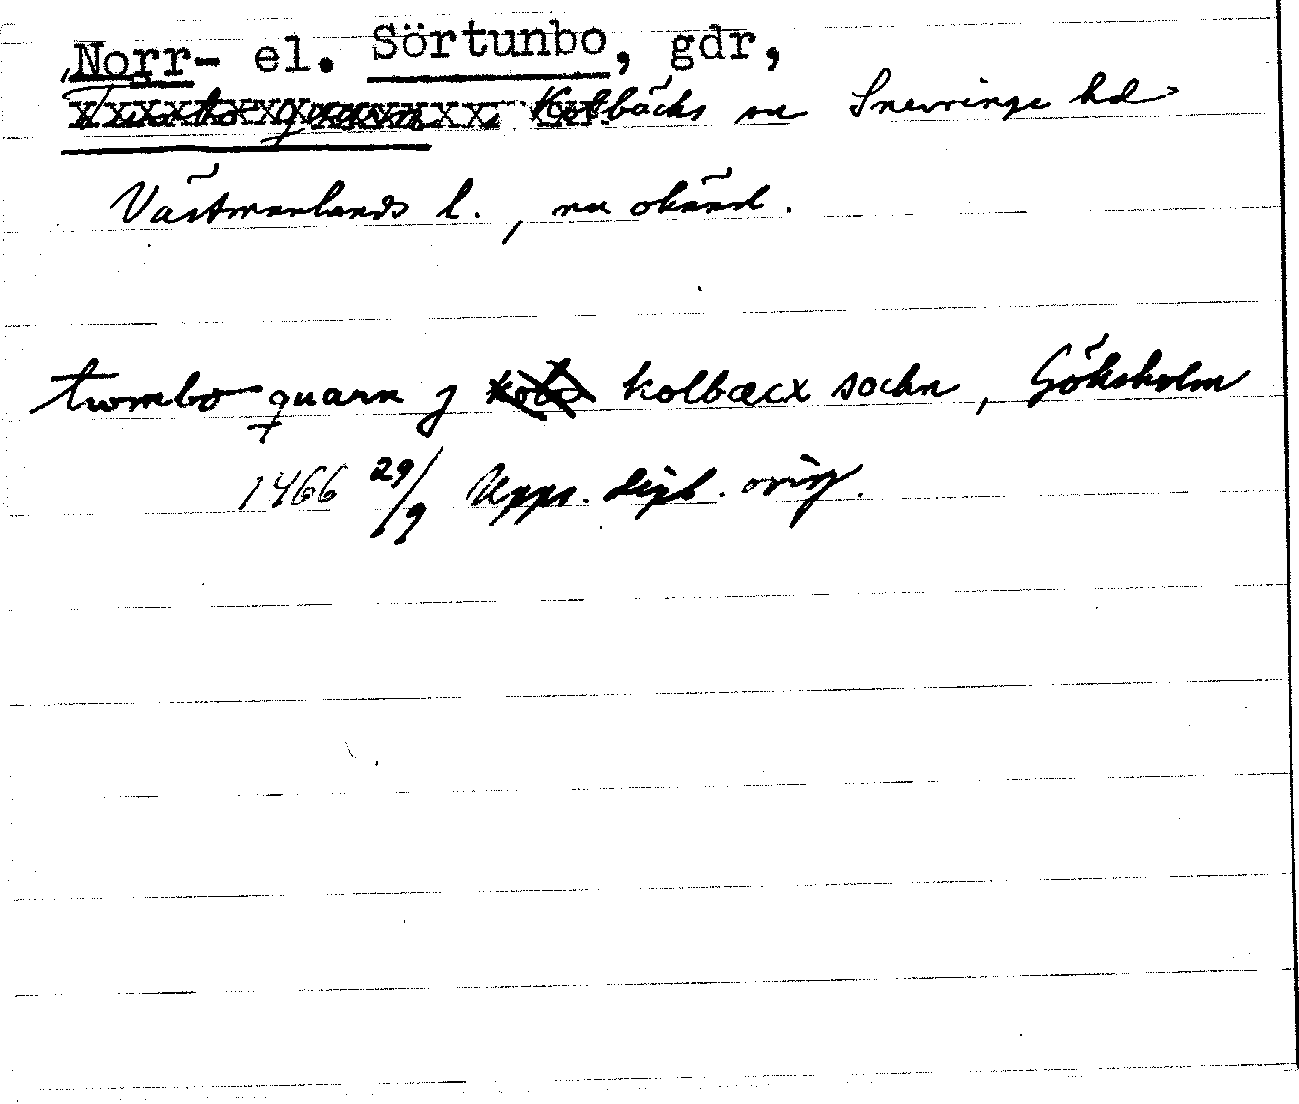 Norr- el. Sörtunbo, gdr,
Kolbäcks sn Snevringe hd
Västmanlands l., nu okänd.
twmbo quarn j kolbæcx sochn, Göksholm
1466 29/9 Upps. dipl. orig.